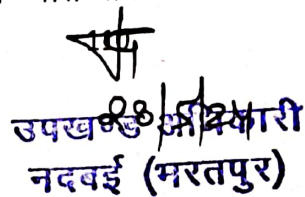 28/5/24
उपखण्ड अधिकारी
नदवई (भरतपुर)